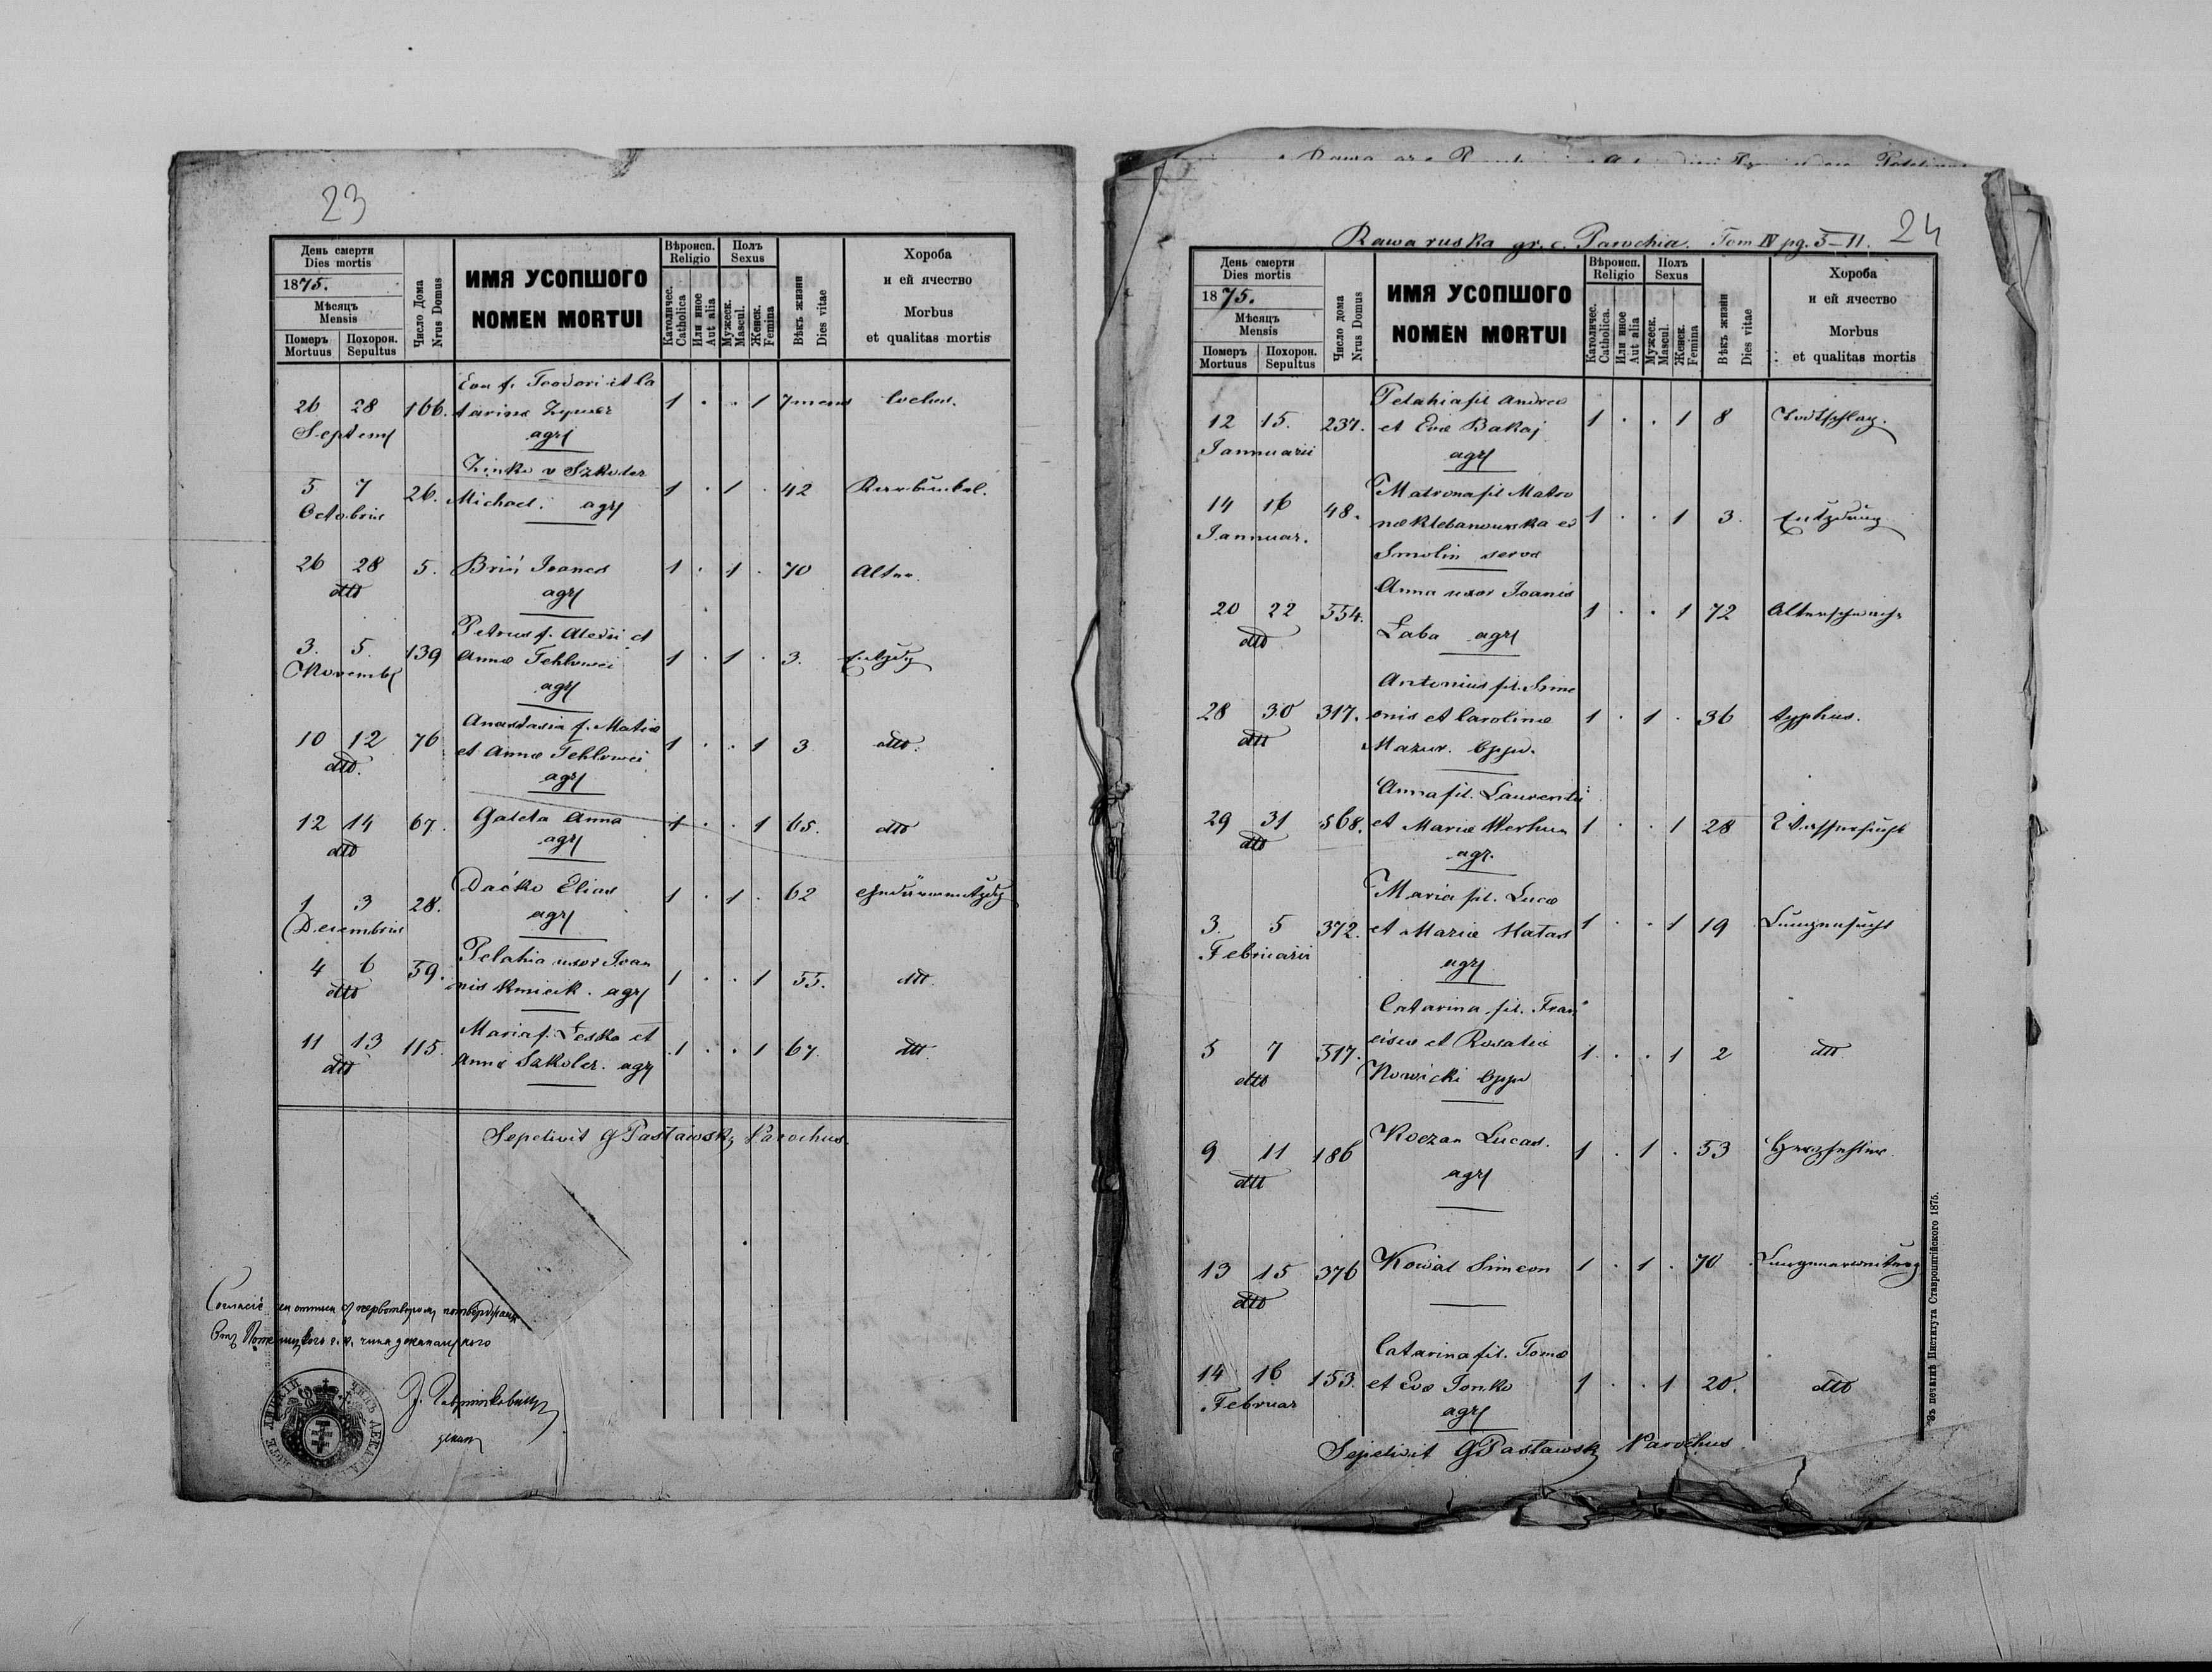 23
День смерти
Dies mortis
1875.
Мѣсяцъ
Mensis
Померъ
Mortuus
Похорон.
Sepultus
Число Дома
Nrus Domus
ИМЯ УСОПШОГО
NOMEN MORTUI
Вѣроисп.
Religio
Католичес.
Catholica
Или иное
Aut alia
Полъ
Sexus
Мужеск.
Mascul.
Женск.
Femina
Вѣкъ жизни
Dies vitae
Хороба
и ей ячество
Morbus
et qualitas mortis
Eva f. Teodori et Ca
26 28 166. tarina 1 . . 1 7 mens
Septem agr
Zinko v Szkoler
5 7 26. Michael. agr 1 . 1 . 42 Karbunkel.
Octobris
26 28 5. Brii Joanes 1 . 1 . 70 Alter.
dtto agr
Petrus f. Alexii et
3. 5. 139 Annæ Tehlowei 1 . 1 . 3. Entzdg
Novemb agr
Anastasia f. Matiæ
10 12 76 et Annæ Tehlowei 1 . . 1 3 dtto.
dtto. agr
12 14 67. Galeta Anna 1 . . 1 65. dtto
dtto agr
1 3 28. Daćko Elias 1 . 1 . 62
Decembris agr
Pelahia uxor Joan
4 6 59. nis Kmieik. agr 1 . . 1 55. dtt.
dtto
Maria f. Lesko et
11 13 115. Annæ Szkoler. agr 1 . . 1 67. dtt.
dtto
Sepelivit G Pasławsky Parochus.
декан
24
Rawa ruska gr. c. Parochia. Tom IV pg. 5-11.
День смерти
Dies mortis
1875.
Мѣсяцъ
Mensis
Померъ
Mortuus
Похорон.
Sepultus
Число дома
Nrus Domus
ИМЯ УСОПШОГО
NOMEN MORTUI
Вѣроисп.
Religio
Католичес.
Catholica.
Или иное
Aut alia
Полъ
Sexus
Мужеск.
Mascul.
Женск.
Femina
Вѣкъ жизни
Dies vitae
Хороба
и ей ячество
Morbus
et qualitas mortis
Pelahia fil Andreæ
12 15. 237. et Evæ Bakaj 1 . . 1 8 Todtschlag.
Jannuarii agr
Matrona fil Matro
14 16 48. næ Klebanowska ex 1 . . 1 3. Entzdung
Jannuar. Smolin serva
Anna uxor Joanis
20 22 554. Łaba agr 1 . . 1 72 Alterschwäche
dtto
Antonius fil. Sime
28 30 317. onis et Carolinæ 1 . 1 . 36 typhus.
dtt Mazur. Oppid.
Anna fil. Laurentii
29 31 568. et Mariæ Werhun 1 . . 1 28 Wassersucht
dtto agr.
Maria fil. Lucæ
3. 5 372. et Mariæ Hatas 1 . . 1 19 Lungensucht
Februarii agr
Catarina fil. Fran
5 7 517. cisco et Rosaliæ 1 . . 1 2 dtt
dtto Nowicki Oppid
9 11 186 Koczan Lucas. 1 . 1 . 53 Herzfehler.
dtt agr
13 15 376 Kowal Simeon 1 . 1 . 70
dtto
Catarina fil. Tomæ
14 16 153. et Evæ Tonko 1 . . 1 20. dtto
Februar agr
Sepelivit G Pasławsky Parochus
Зъ печатнѣ Института Ставропигійского 1875.